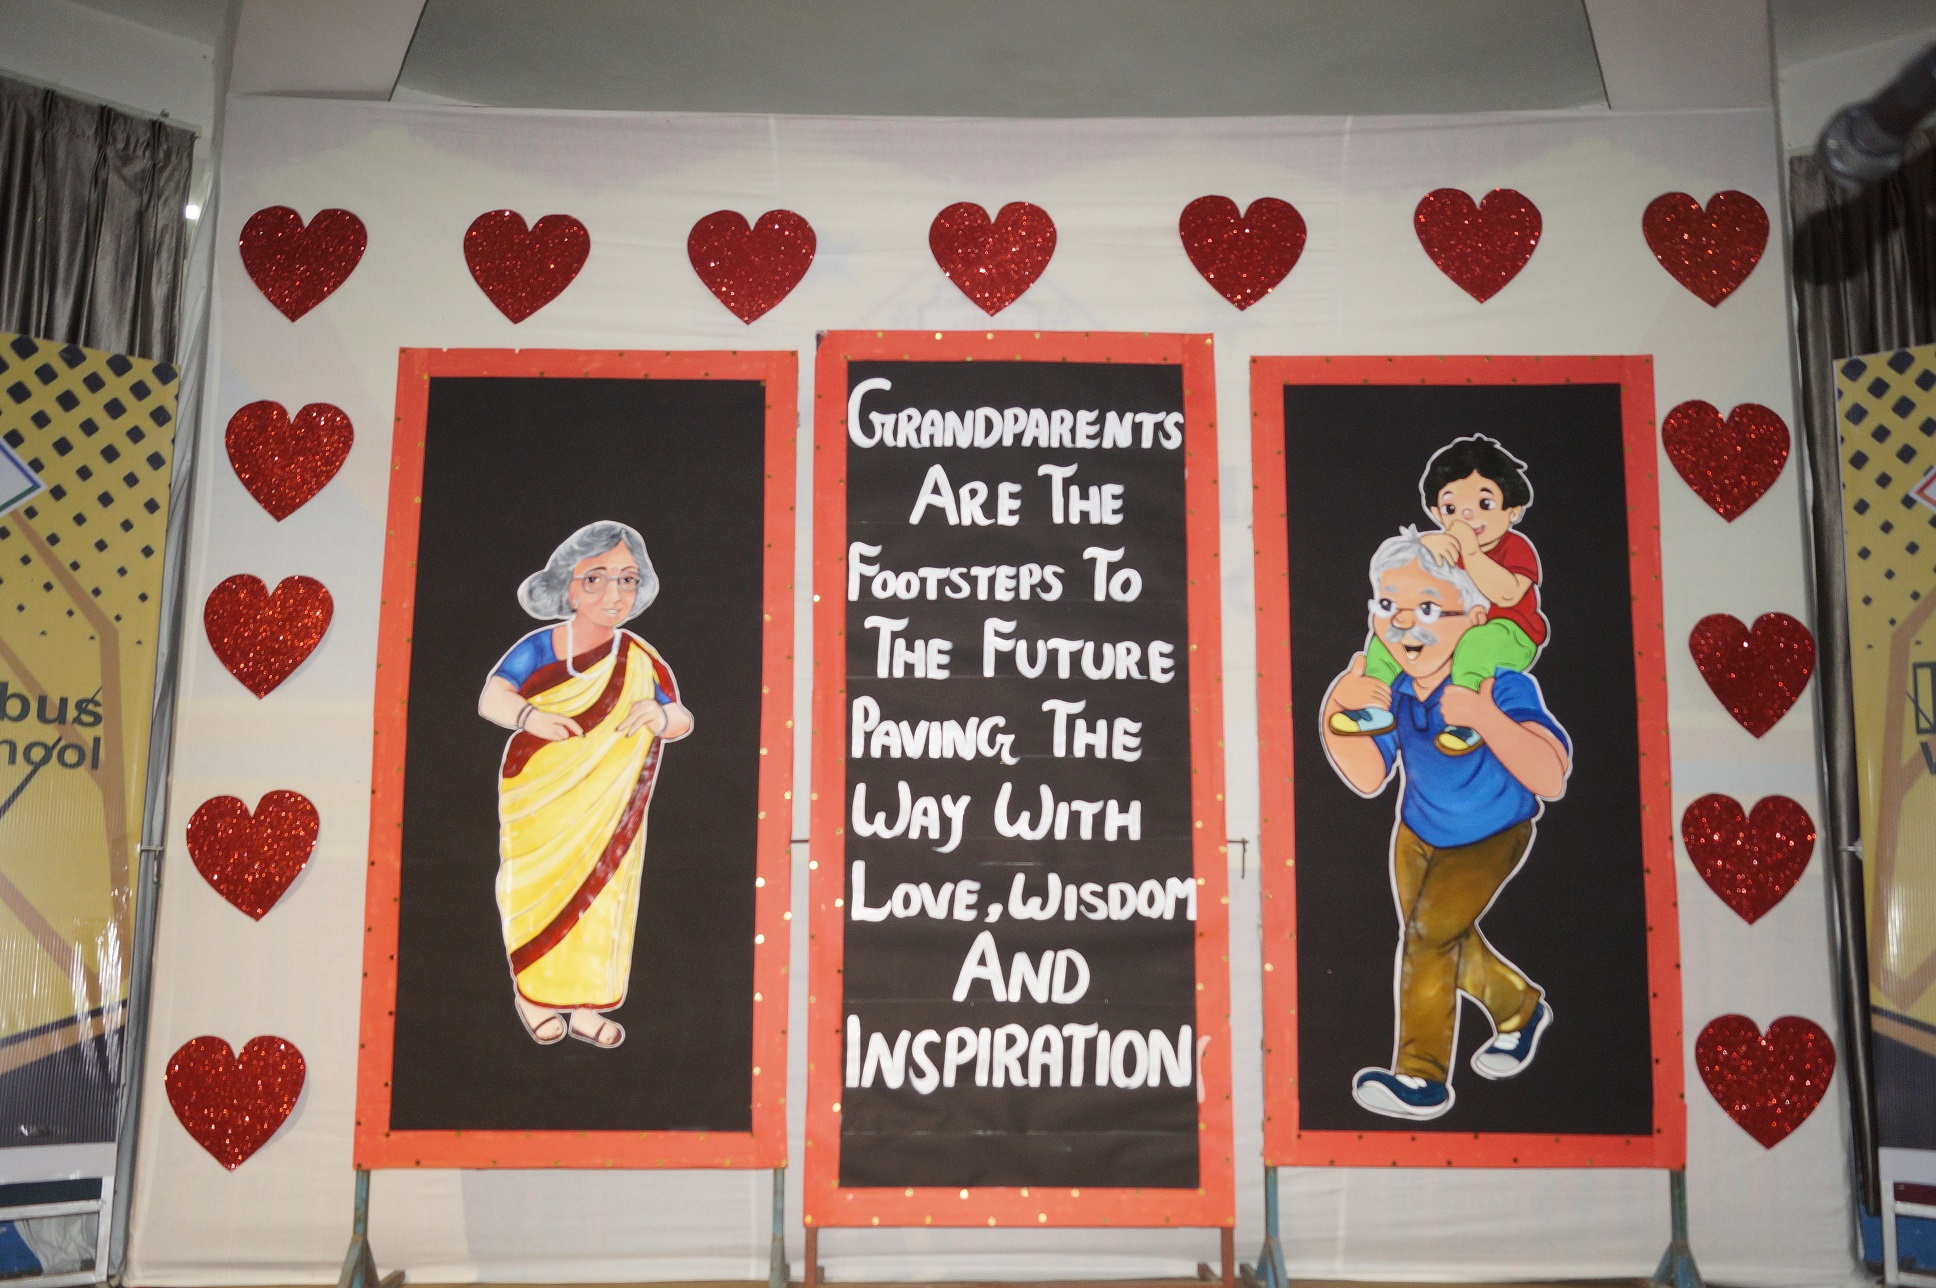 GRANDPARENTS
ARE THE
FOOTSTEPS TO
THE FUTURE
PAVING THE
WAY WITH
LOVE, WISDOM
AND
INSPIRATION
bus
hool